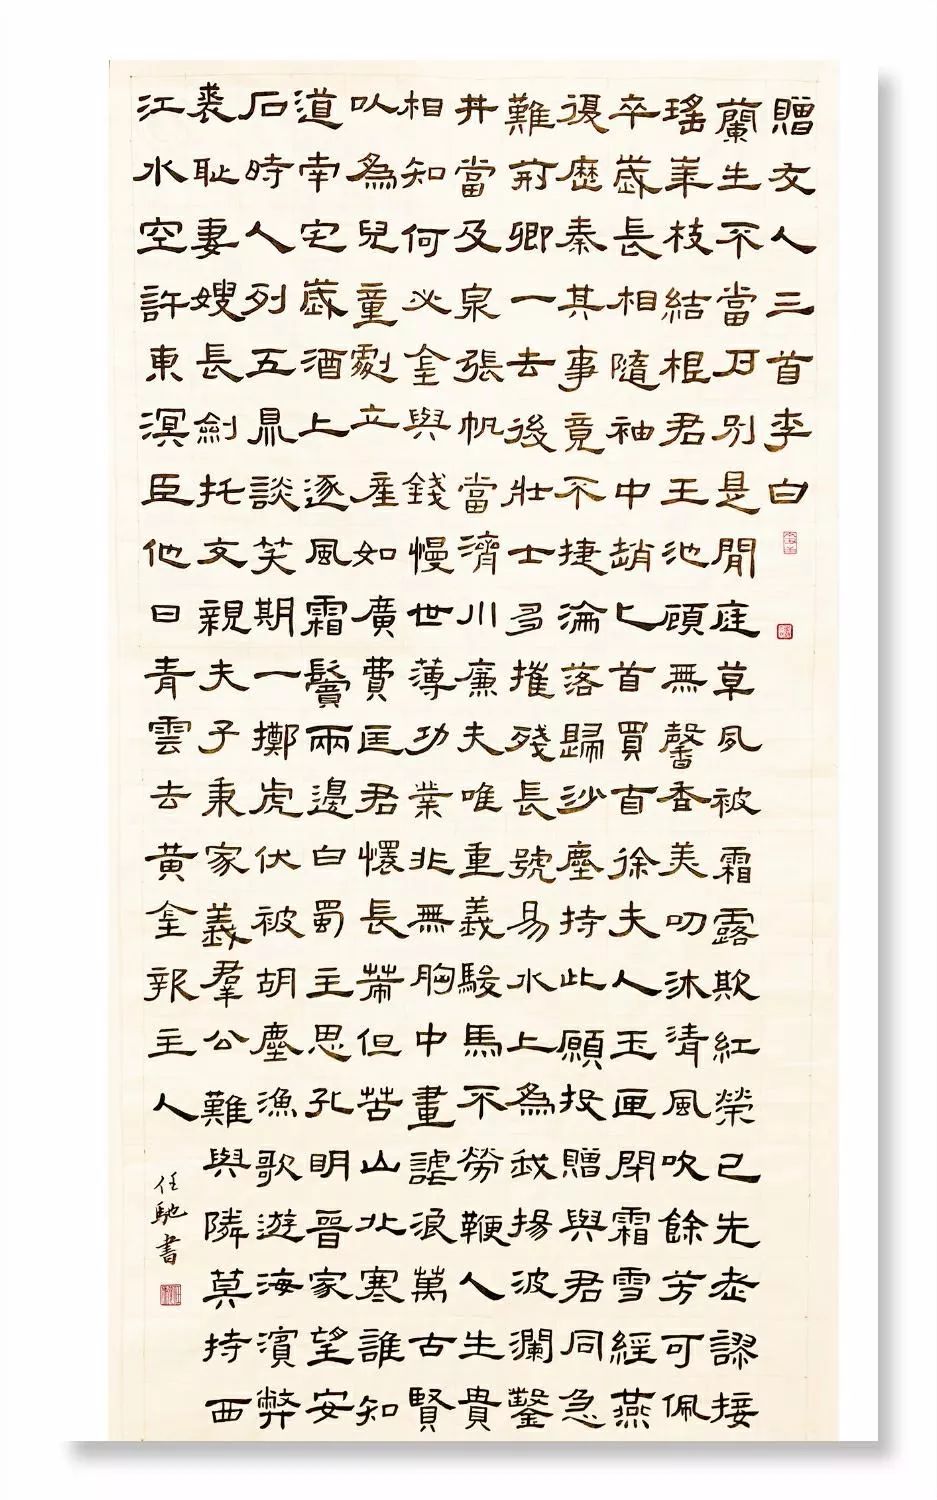 贈友人三首李白
蘭生不當戶別是閒庭草夙被霜露欺紅榮已先老謬接
瑤華枝結根君王池顧無馨香美叨沐清風吹餘芳可佩
卒歲長相隨袖中趙匕首買自徐夫人玉匣閉霜雪經燕
復歷秦其事竟不捷淪落歸沙塵持此願投贈與君同急
難荊卿一去後壯士多摧殘長號易水上為我揚波瀾鑿
井當及泉張帆當濟川廉夫唯重義駿馬不勞鞭人生貴
相知何必金與錢慢世薄功業非無胸中畫謔浪萬古賢
以為兒童劇立產如廣費匡君懷長策但苦山北寒誰知
道南宅歲酒上逐風霜鬢兩邊白蜀主思孔明晉家望安
石時人列五鼎談笑期一擲虎伏被胡塵漁歌遊海濱弊
裘耻妻嫂長劍托交親夫子秉家義羣公難與隣莫持西
江水空許東溟臣他日青雲去黃金報主人
任馳書